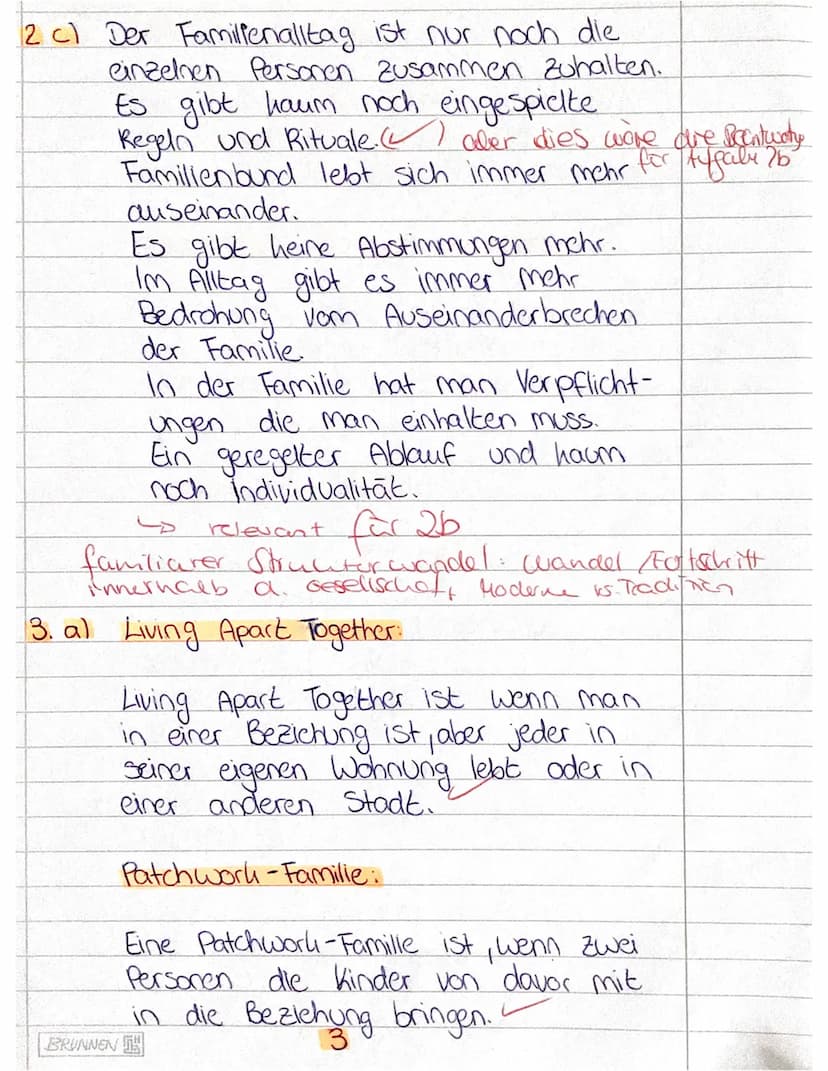 2 c) Der Familienalltag ist nur noch die
einzelnen Personen zusammen zuhalten.
Es gibt kaum noch eingespielte
Regeln und Rituale. (✓) aber dies wäre die Beantwortg
für Aufgabe 2b
Familienbund lebt sich immer mehr
auseinander.
Es gibt keine Abstimmungen mehr.
Im Alltag gibt es immer mehr
Bedrohung vom Auseinanderbrechen
der Familie.
In der Familie hat man Verpflicht-
ungen die man einhalten muss.
Ein geregelter Ablauf und kaum
noch individualität.
↳ relevant für 2b
familiärer Strukturwandel: Wandel / Fortschritt
innerhalb d. Gesellschaft, Moderne vs. Traditionen
3. a) Living Apart Together:
Living Apart Together ist wenn man
in einer Beziehung ist, aber jeder in
seiner eigenen Wohnung lebt oder in
einer anderen Stadt. ✓
Patchwork-Familie:
Eine Patchwork-Familie ist, wenn zwei
Personen die Kinder von davor mit
in die Beziehung bringen. ✓
BRUNNEN
3